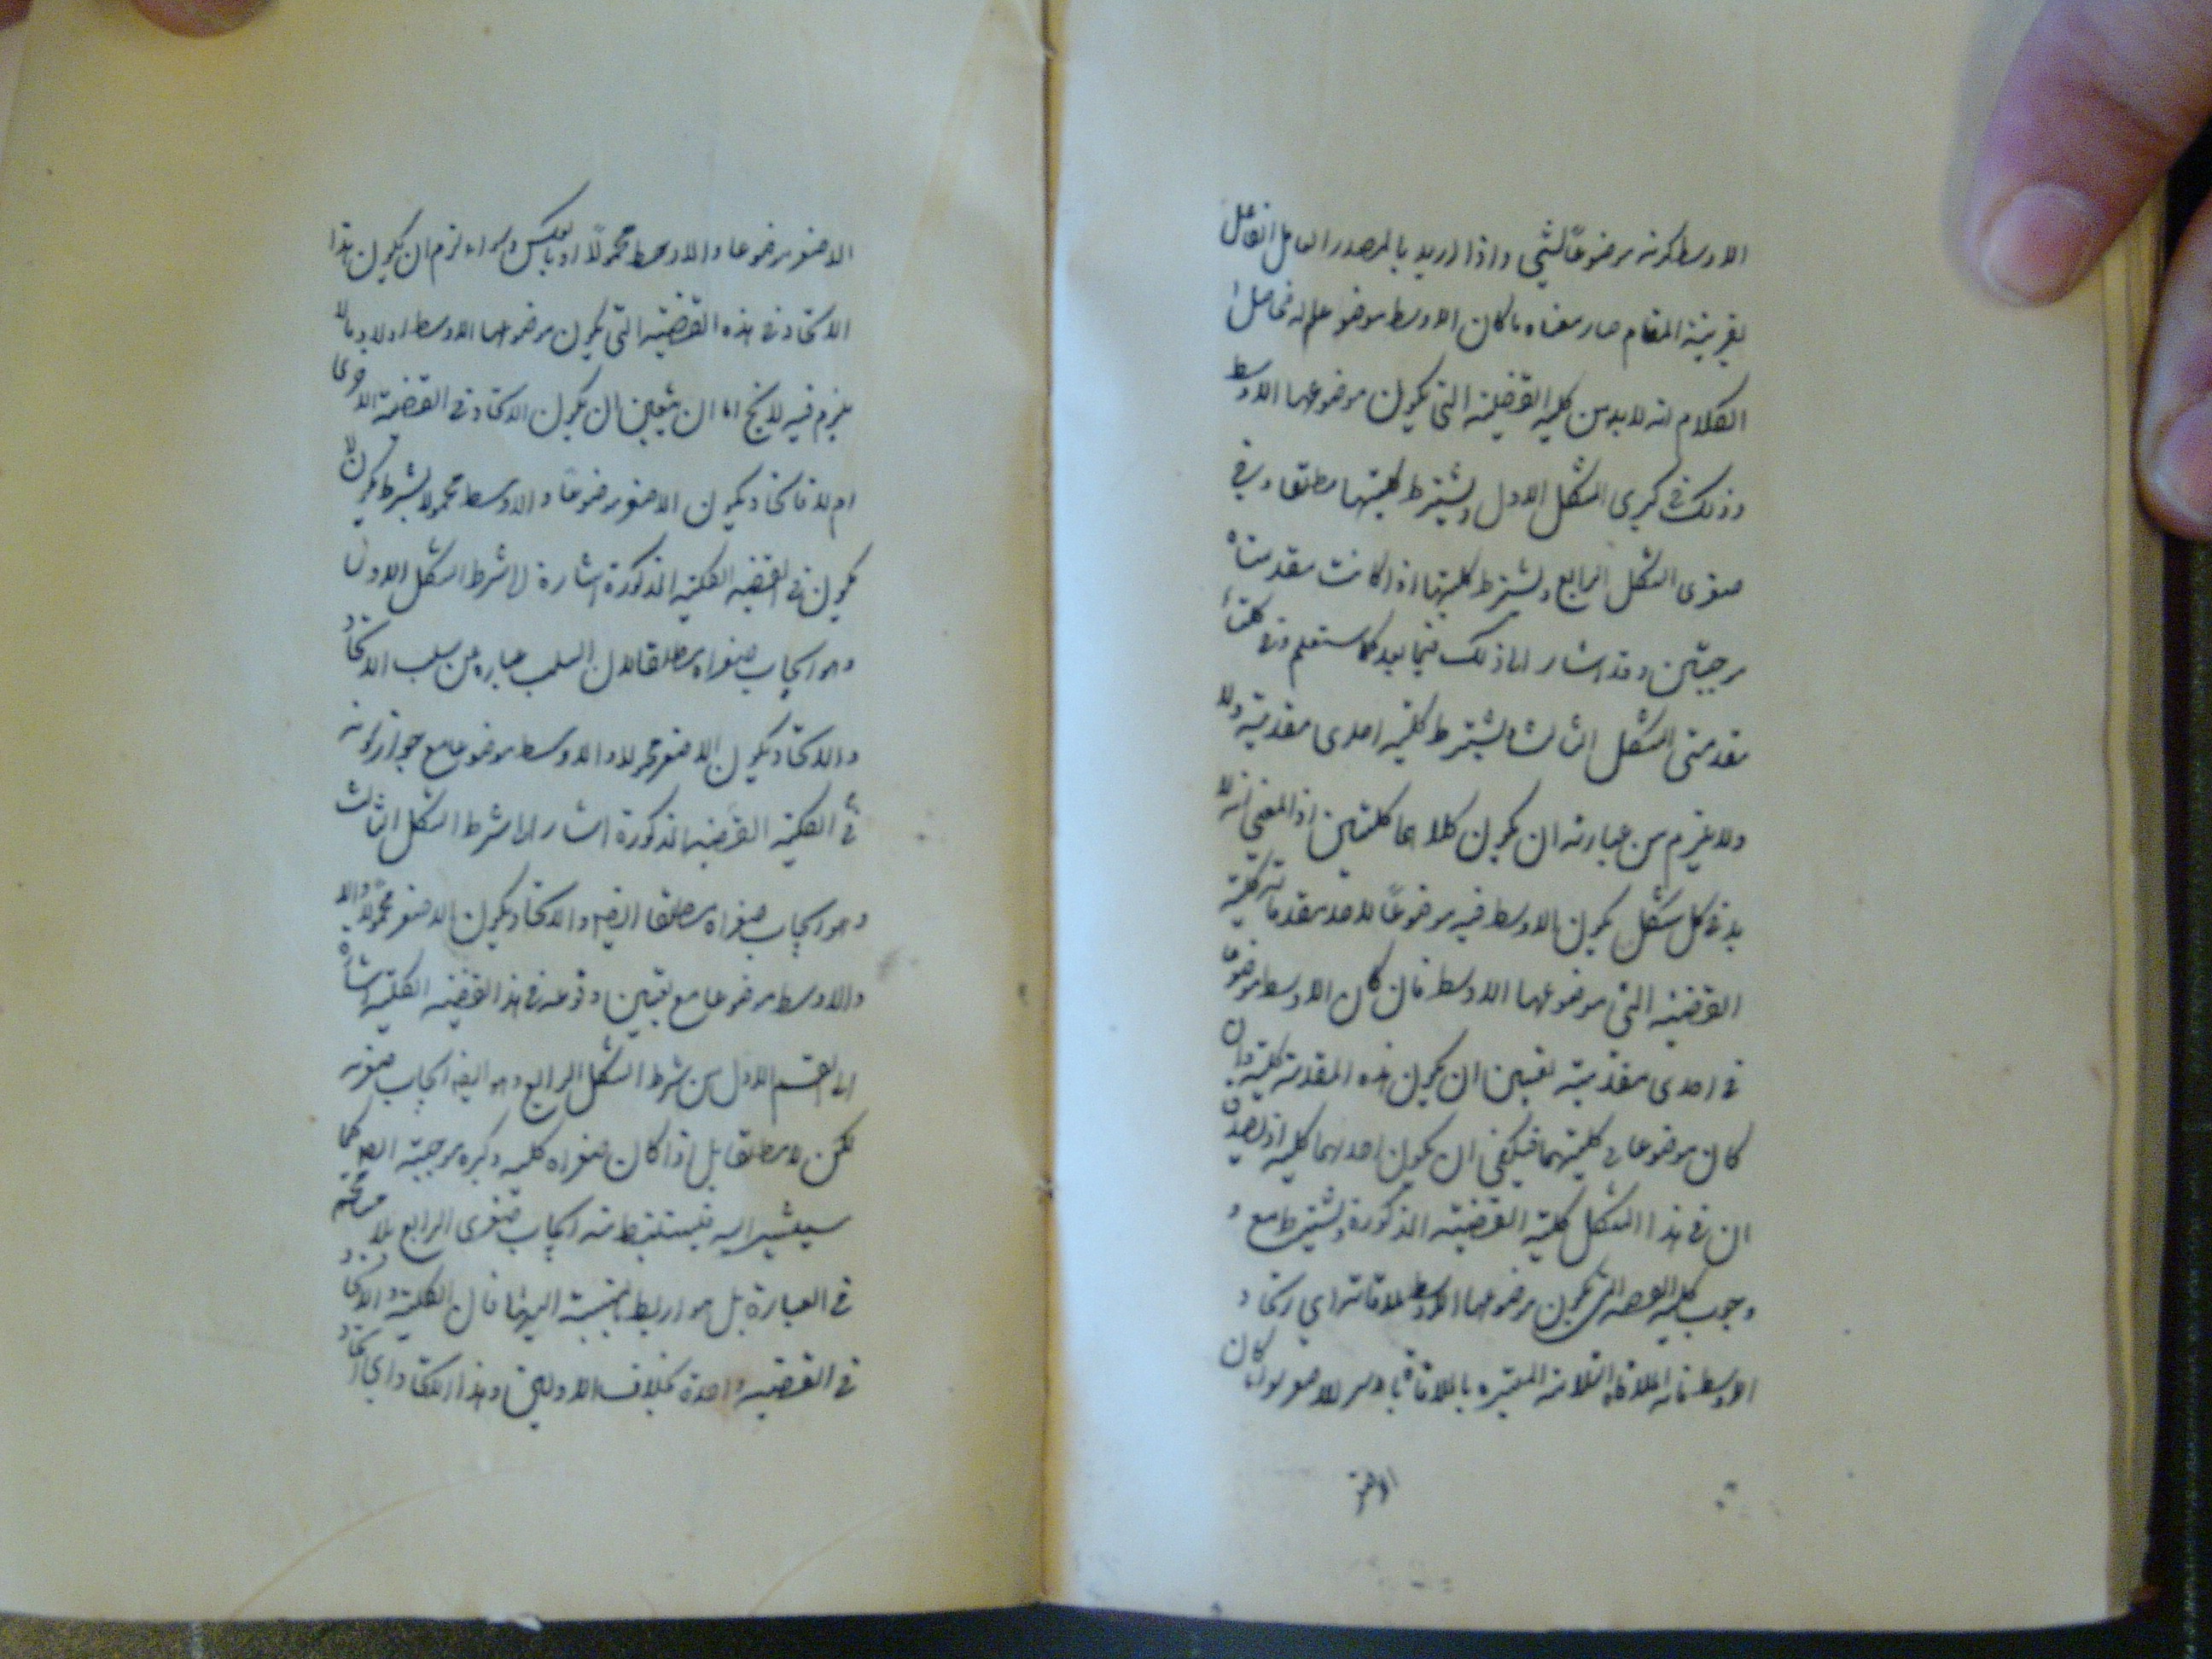 الاوسط كونه موضوعًا لشئ واذا اريد بالمصدر الحاصل الفاعل
بقرينة المقام صار معناه ما كان الاوسط موضوعا له فحاصل
الكلام انه لا بد من كلية القضية التى يكون موضوعها الاوسط
وذلك فى كبرى الشكل الاول ويشترط كليتها مطلقا وفى
صغرى الشكل الرابع ويشترط كليتها اذا كانت مقدمتاه
موجبتين وقد اشار الى ذلك فيما بعد كما ستعلم وفى كلتا
مقدمتى الشكل الثالث ويشترط كلية احدى مقدمتيه ولا
ولا يلزم من عبارته ان يكون كلاهما كليتين اذ المعنى انه لا
بد فى كل شكل يكون الاوسط فيه موضوعًا لاحد مقدماته كلية
القضية التى موضوعها الاوسط فان كان الاوسط موضوعا
فى احدى مقدمتيه تعين ان يكون هذه المقدمة كلية وان
كان موضوعا فى كليتهما فيكفى ان يكون احدهما كلية اذ يصدق
ان فى هذا الشكل كلية القضية المذكورة ويشترط مع
وجوب كلية القضية التى يكون موضوعها الاوسط ملاقاته اي اتحاد
الاوسط فانه الملاقاة الثلاثة المعتبرة بالملاقاة للاصغر سواء كان
الاصغر
الاصغر موضوعا والاوسط محمولاً او بالعكس وسواء لزم ان يكون هذا
الاتحاد فى هذه القضية التى يكون موضوعها الاوسط اولا وما لا
يلزم فيه لا يخ اما ان يتعين ان يكون الاتحاد فى القضية الاخرى
ام لا فاتحاد يكون الاصغر موضوعًا والاوسط محمولا بشرط ان لا
يكون فى القضية الكلية المذكورة اشارة الى شرط الشكل الاول
وهو ايجاب صغراه مطلقا لان السلب عبارة عن سلب الاتحاد
والاتحاد يكون الاصغر محمولا والاوسط موضوعا مع جواز كونه
فى الكلية القضية المذكورة اشار الى شرط الشكل الثالث
وهو ايجاب صغراه مطلقا ايضا والاتحاد يكون الاصغر محمولا
والاوسط موضوعا مع تعيين وقوعه فى هذا القضية الكلية اشارة
الى القسم الاول من شرط الشكل الرابع وهو ايضا ايجاب صغريه
لكن لا مطلقا بل اذا كان صغراه كلية وكبره موجبة ايضا كما
سيشير اليه فيستنبط منه ايجاب صغرى الرابع بلا
فى العبارة بل هو اربط بالنسبة اليها فان الكلية والاتحاد
فى القضية واحدة بخلاف الاوليين وهذا الاتحاد اي اتحاد